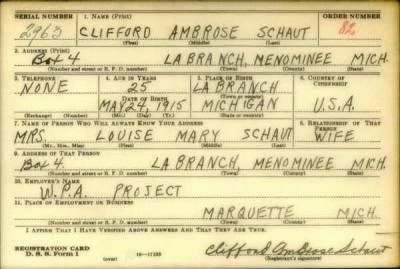 SERIAL NUMBER 1. NAME (Print) ORDER NUMBER
2963 CLIFFORD AMBROSE SCHAUT 82
(First) (Middle) (Last)
2. ADDRESS (Print)
Box 4 LABRANCH, MENOMINEE MICH.
(Number and street or R. F. D. number) (Town) (County) (State)
3. TELEPHONE 4. AGE IN YEARS 5. PLACE OF BIRTH 6. COUNTRY OF CITIZENSHIP
NONE 25 LABRANCH
DATE OF BIRTH (Town or county)
MAY 24, 1915 MICHIGAN U.S.A.
(Exchange) (Number) (Mo.) (Day) (Yr.) (State or country)
7. NAME OF PERSON WHO WILL ALWAYS KNOW YOUR ADDRESS 8. RELATIONSHIP OF THAT PERSON
MRS. LOUISE MARY SCHAUT WIFE
(Mr., Mrs., Miss) (First) (Middle) (Last)
9. ADDRESS OF THAT PERSON
Box 4. LABRANCH, MENOMINEE MICH.
(Number and street or R. F. D. number) (Town) (County) (State)
10. EMPLOYER'S NAME
W.P.A. PROJECT
11. PLACE OF EMPLOYMENT OR BUSINESS
MARQUETTE MICH.
(Number and street or R. F. D. number) (Town) (County) (State)
I AFFIRM THAT I HAVE VERIFIED ABOVE ANSWERS AND THAT THEY ARE TRUE.
REGISTRATION CARD
D. S. S. Form 1 (over) Clifford Ambrose Schaut
(Registrant's signature)